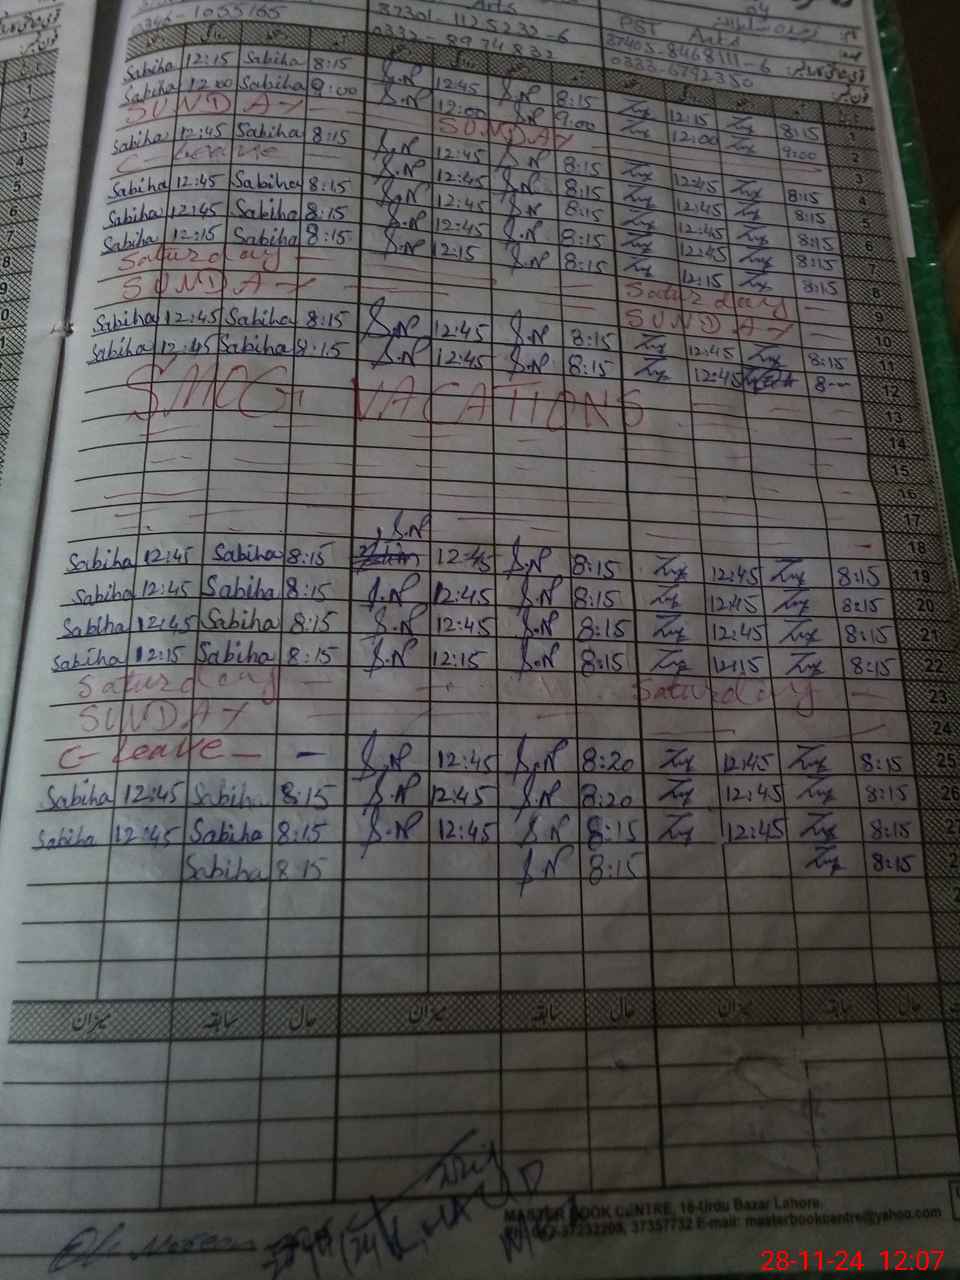 Arts
0346-1055165 37301-1125232-6 PST Arts 04
0332-8974832 37405-8468111-6
0333-6792350
Sabiha 12:15 Sabiha 8:15 S.N 12:45 S.N 8:15 12:15 8:15 1
Sabiha 12:00 Sabiha 9:00 S.N 12:00 S.N 9:00 12:00 9:00 2
SUNDAY SUNDAY 3
Sabiha 12:45 Sabiha 8:15 S.N 12:45 S.N 8:15 12:45 8:15 4
C-Leave S.N 12:45 S.N 8:15 12:45 8:15 5
Sabiha 12:45 Sabiha 8:15 S.N 12:45 S.N 8:15 12:45 8:15 6
Sabiha 12:45 Sabiha 8:15 S.N 12:45 S.N 8:15 12:45 8:15 7
Sabiha 12:15 Sabiha 8:15 S.N 12:15 S.N 8:15 12:15 8:15 8
Saturday Saturday 9
SUNDAY SUNDAY 10
Sabiha 12:45 Sabiha 8:15 S.N 12:45 S.N 8:15 12:45 8:15 11
Sabiha 12:45 Sabiha 8:15 S.N 12:45 S.N 8:15 12:45 12
SMOG VACATIONS 13
14
15
16
17
S.N 18
Sabiha 12:45 Sabiha 8:15 12:45 S.N 8:15 12:45 8:15 19
Sabiha 12:45 Sabiha 8:15 S.N 12:45 S.N 8:15 12:45 8:15 20
Sabiha 12:45 Sabiha 8:15 S.N 12:45 S.N 8:15 12:45 8:15 21
Sabiha 12:15 Sabiha 8:15 S.N 12:15 S.N 8:15 12:15 8:15 22
Saturday Saturday 23
SUNDAY 24
C-Leave S.N 12:45 S.N 8:20 12:45 8:15 25
Sabiha 12:45 Sabiha 8:15 S.N 12:45 S.N 8:20 12:45 8:15 26
Sabiha 12:45 Sabiha 8:15 S.N 12:45 S.N 8:15 12:45 8:15 27
Sabiha 8:15 S.N 8:15 8:15
حال سابقہ میزان حال سابقہ میزان حال سابقہ میزان
MASTER BOOK CENTRE, 16-Urdu Bazar Lahore.
37232208, 37357732 E-mail: masterbookcentre@yahoo.com
28-11-24 12:07